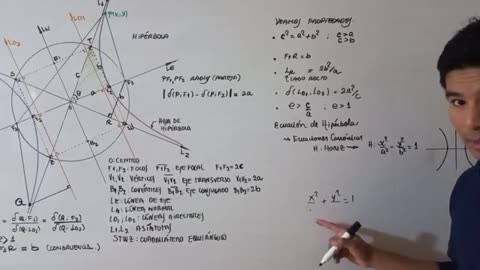 HIPÉRBOLA
P(x,y)
PF₁, PF₂ RADIOS (VARIOS)
|d(P,F₁) - d(P,F₂)| = 2a
HOJA DE
HIPÉRBOLA
O: CENTRO
F₁, F₂: FOCOS F₁F₂ EJE FOCAL F₁F₂ = 2c
V₁, V₂: VÉRTICES V₁V₂ EJE TRANSVERSO V₁V₂ = 2a
B₁, B₂ CONVÉRTICES B₁B₂ EJE CONJUGADO B₁B₂ = 2b
LE: LÍNEA DE EJE
LN: LÍNEA NORMAL
LD₁, LD₂: LÍNEAS DIRECTRICES
L₁, L₂ ASÍNTOTAS
STWZ: CUADRILÁTERO EQUIÁNGULO
F₁R = b (CONGRUENCIA)
VEAMOS PROPIEDADES
• c² = a² + b² ; c > a
c > b
• F₁R = b
• LR = 2b²/a
LADO RECTO
• d(LD₁, LD₂) = 2a²/c
• e = c/a ; e > 1
Ecuación de Hipérbola
→ Ecuaciones Canónicas
H. HORIZ → H: x²/a² - y²/b² = 1
x² + y² = 1